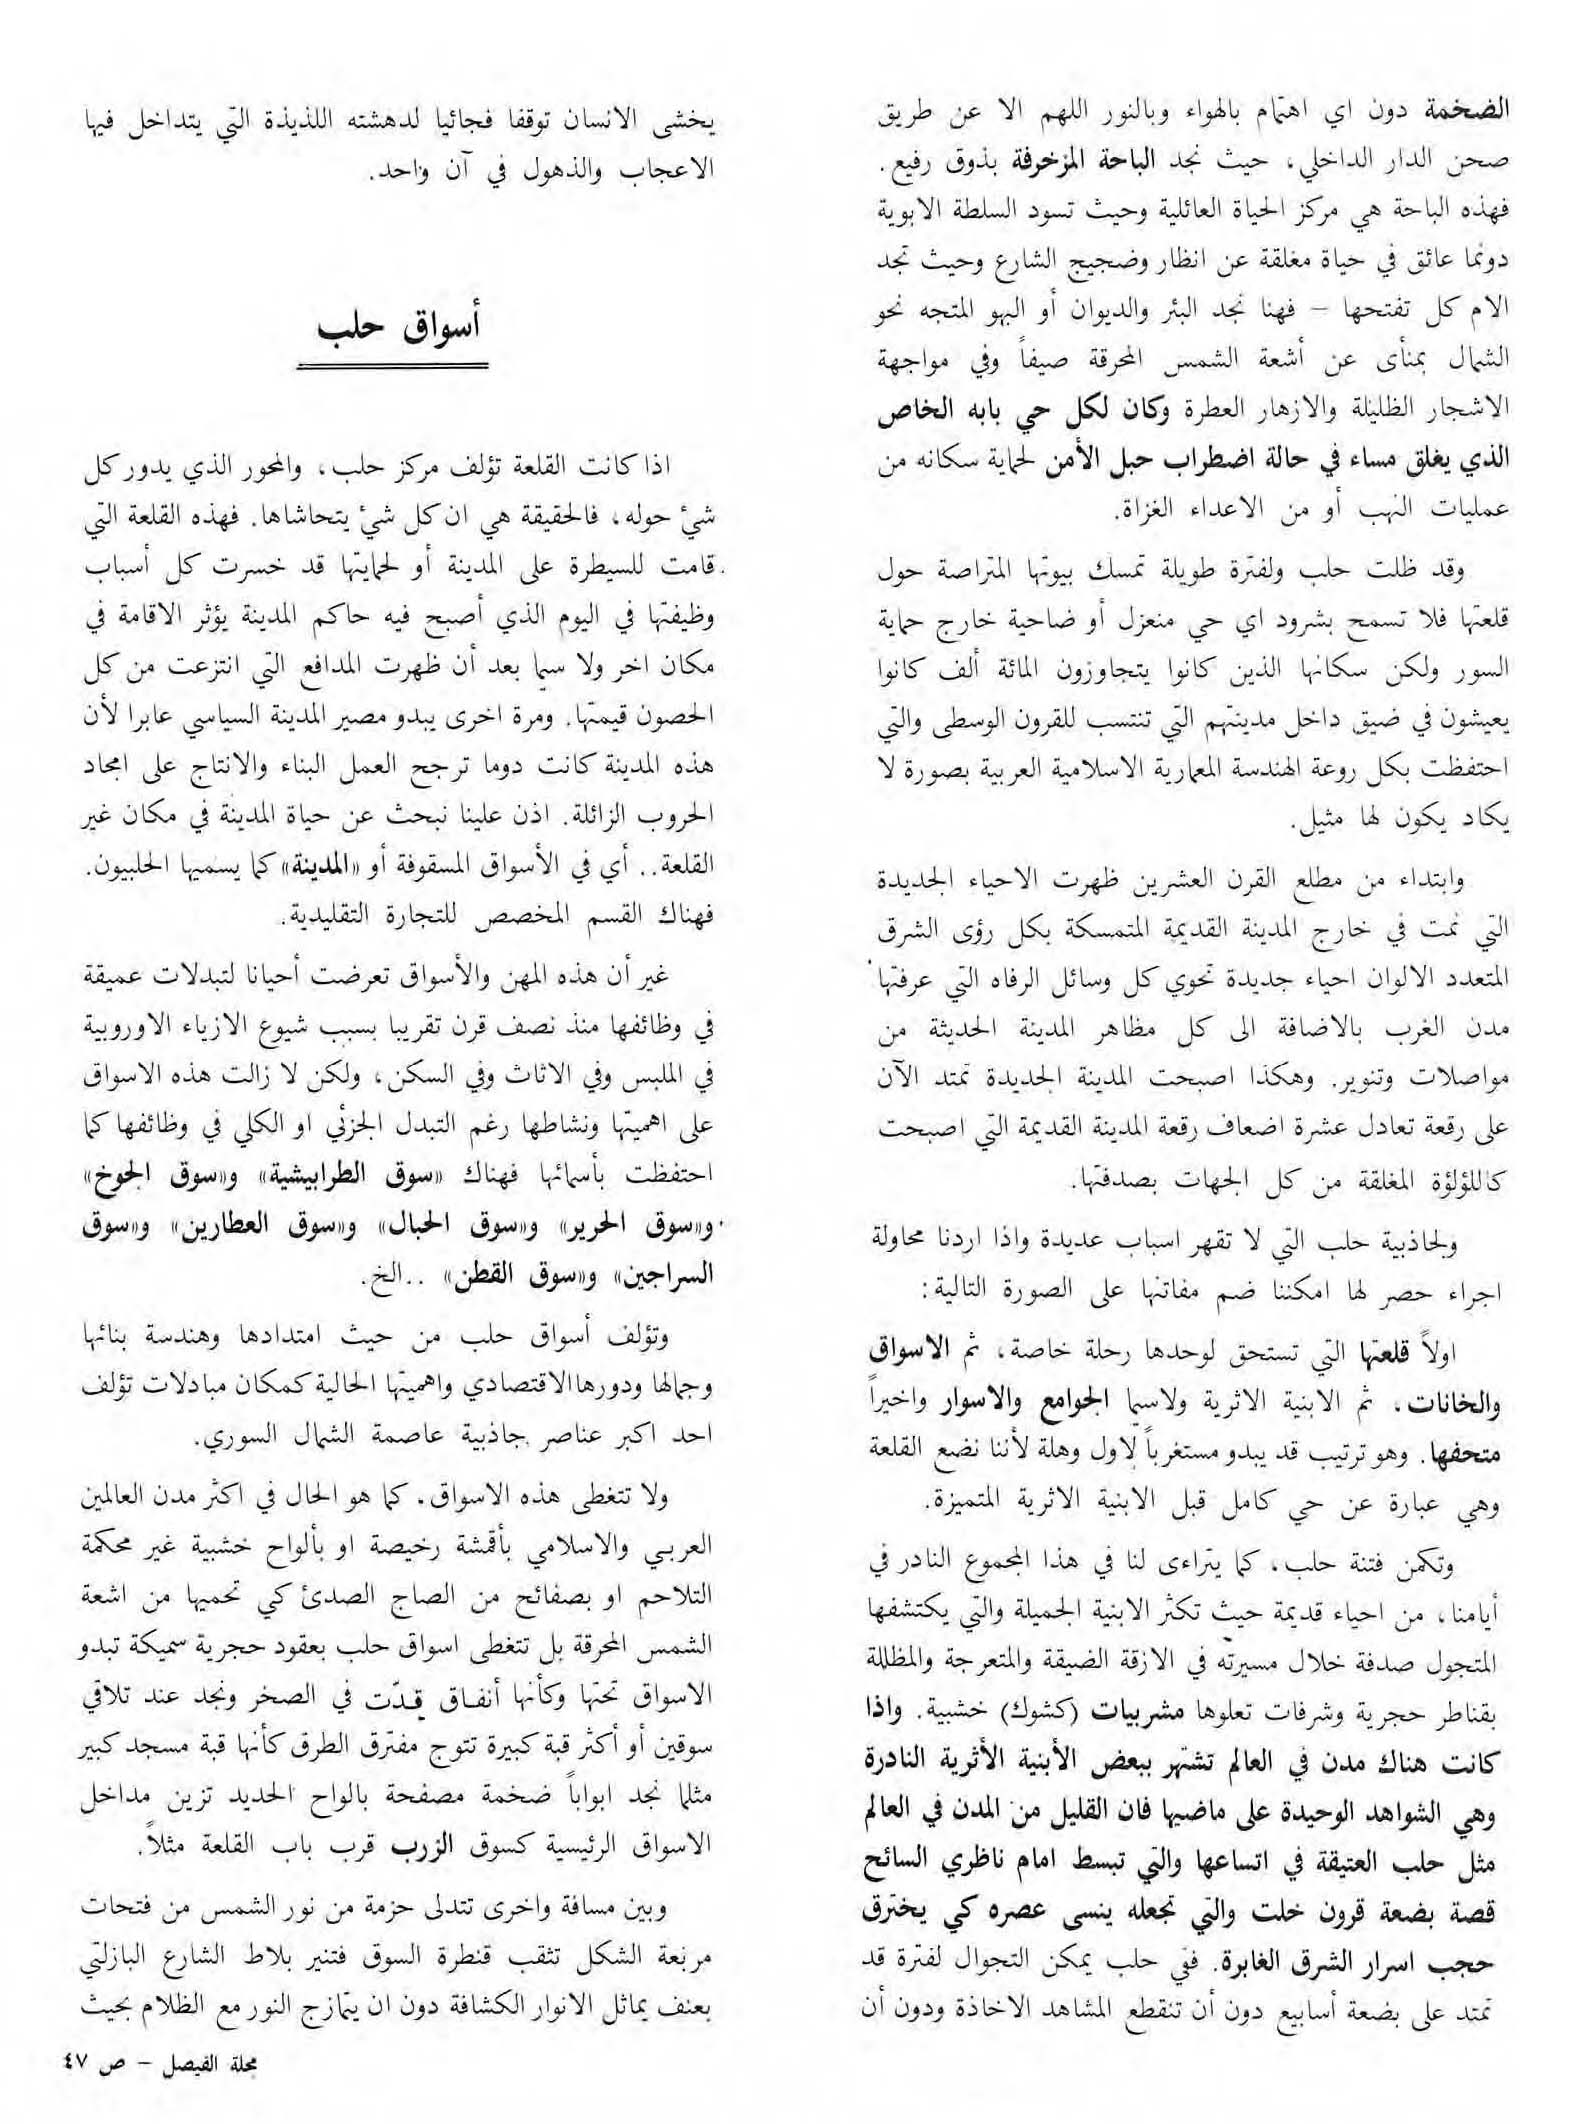 الضخمة دون اي اهتمام بالهواء وبالنور اللهم الا عن طريق
صحن الدار الداخلي، حيث نجد الباحة المزخرفة بذوق رفيع.
فهذه الباحة هي مركز الحياة العائلية وحيث تسود السلطة الابوية
دونما عائق في حياة مغلقة عن انظار وضجيج الشارع وحيث تجد
الام كل تفتحها – فهنا نجد البئر والديوان أو البهو المتجه نحو
الشمال بمنأى عن أشعة الشمس المحرقة صيفاً وفي مواجهة
الاشجار الظليلة والازهار العطرة وكان لكل حي بابه الخاص
الذي يغلق مساء في حالة اضطراب حبل الأمن لحماية سكانه من
عمليات النهب أو من الاعداء الغزاة.
وقد ظلت حلب ولفترة طويلة تمسك بيوتها المتراصة حول
قلعتها فلا تسمح بشرود اي حي منعزل أو ضاحية خارج حماية
السور ولكن سكانها الذين كانوا يتجاوزون المائة ألف كانوا
يعيشون في ضيق داخل مدينتهم التي تنتسب للقرون الوسطى والتي
احتفظت بكل روعة الهندسة المعمارية الاسلامية العربية بصورة لا
يكاد يكون لها مثيل.
وابتداء من مطلع القرن العشرين ظهرت الاحياء الجديدة
التي نمت في خارج المدينة القديمة المتمسكة بكل رؤى الشرق
المتعدد الالوان احياء جديدة تحوي كل وسائل الرفاه التي عرفتها
مدن الغرب بالاضافة الى كل مظاهر المدينة الحديثة من
مواصلات وتنوير. وهكذا اصبحت المدينة الجديدة تمتد الآن
على رقعة تعادل عشرة اضعاف رقعة المدينة القديمة التي اصبحت
كاللؤلؤة المغلقة من كل الجهات بصدفتها.
ولجاذبية حلب التي لا تقهر اسباب عديدة واذا اردنا محاولة
اجراء حصر لها امكننا ضم مفاتنها على الصورة التالية:
اولاً قلعتها التي تستحق لوحدها رحلة خاصة، ثم الاسواق
والخانات، ثم الابنية الاثرية ولاسيما الجوامع والاسوار واخيراً
متحفها. وهو ترتيب قد يبدو مستغرباً لاول وهلة لأننا نضع القلعة
وهي عبارة عن حي كامل قبل الابنية الاثرية المتميزة.
وتكمن فتنة حلب، كما يتراءى لنا في هذا المجموع النادر في
أيامنا، من احياء قديمة حيث تكثر الابنية الجميلة والتي يكتشفها
المتجول صدفة خلال مسيرته في الازقة الضيقة والمتعرجة والمظللة
بقناطر حجرية وشرفات تعلوها مشربيات (كشوك) خشبية. واذا
كانت هناك مدن في العالم تشتهر ببعض الأبنية الأثرية النادرة
وهي الشواهد الوحيدة على ماضيها فان القليل من المدن في العالم
مثل حلب العتيقة في اتساعها والتي تبسط امام ناظري السائح
قصة بضعة قرون خلت والتي تجعله ينسى عصره كي يخترق
حجب اسرار الشرق الغابرة. ففي حلب يمكن التجوال لفترة قد
تمتد على بضعة أسابيع دون أن تنقطع المشاهد الاخاذة ودون أن
يخشى الانسان توقفا فجائيا لدهشته اللذيذة التي يتداخل فيها
الاعجاب والذهول في آن واحد.
أسواق حلب
اذا كانت القلعة تؤلف مركز حلب، والمحور الذي يدور كل
شئ حوله، فالحقيقة هي ان كل شئ يتحاشاها. فهذه القلعة التي
قامت للسيطرة على المدينة أو لحمايتها قد خسرت كل أسباب
وظيفتها في اليوم الذي أصبح فيه حاكم المدينة يؤثر الاقامة في
مكان اخر ولا سيما بعد أن ظهرت المدافع التي انتزعت من كل
الحصون قيمتها. ومرة اخرى يبدو مصير المدينة السياسي عابرا لأن
هذه المدينة كانت دوما ترجح العمل البناء والانتاج على امجاد
الحروب الزائلة. اذن علينا نبحث عن حياة المدينة في مكان غير
القلعة.. أي في الأسواق المسقوفة أو «المدينة» كما يسميها الحلبيون.
فهناك القسم المخصص للتجارة التقليدية.
غير أن هذه المهن والأسواق تعرضت أحيانا لتبدلات عميقة
في وظائفها منذ نصف قرن تقريبا بسبب شيوع الازياء الاوروبية
في الملبس وفي الاثاث وفي السكن، ولكن لا زالت هذه الاسواق
على اهميتها ونشاطها رغم التبدل الجزئي او الكلي في وظائفها كما
احتفظت بأسمائها فهناك «سوق الطرابيشية» و«سوق الجوخ»
و«سوق الحرير» و«سوق الحبال» و«سوق العطارين» و«سوق
السراجين» و«سوق القطن» ..الخ.
وتؤلف أسواق حلب من حيث امتدادها وهندسة بنائها
وجمالها ودورها الاقتصادي واهميتها الحالية كمكان مبادلات تؤلف
احد اكبر عناصر جاذبية عاصمة الشمال السوري.
ولا تتغطى هذه الاسواق، كما هو الحال في اكثر مدن العالمين
العربي والاسلامي بأقمشة رخيصة او بألواح خشبية غير محكمة
التلاحم او بصفائح من الصاج الصدئ كي تحميها من اشعة
الشمس المحرقة بل تتغطى اسواق حلب بعقود حجرية سميكة تبدو
الاسواق تحتها وكأنها أنفاق قدّت في الصخر ونجد عند تلاقي
سوقين أو أكثر قبة كبيرة تتوج مفترق الطرق كأنها قبة مسجد كبير
مثلما نجد ابواباً ضخمة مصفحة بالواح الحديد تزين مداخل
الاسواق الرئيسية كسوق الزرب قرب باب القلعة مثلاً.
وبين مسافة واخرى تتدلى حزمة من نور الشمس من فتحات
مربعة الشكل تثقب قنطرة السوق فتنير بلاط الشارع البازلتي
بعنف يماثل الانوار الكشافة دون ان يتمازج النور مع الظلام بحيث
مجلة الفيصل – ص ٤٧